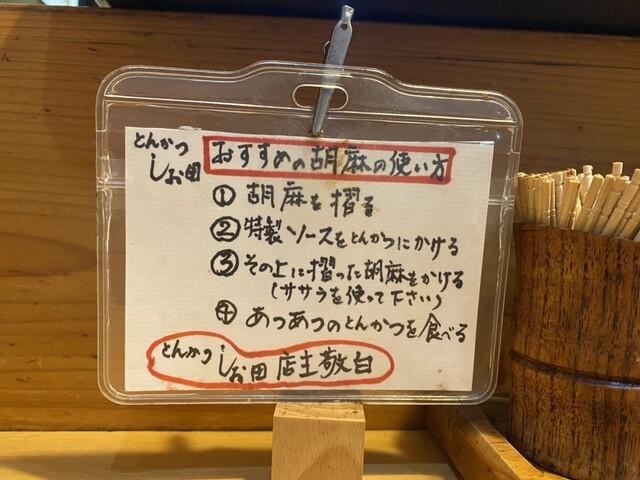 とんかつ
しお田
おすすめの胡麻の使い方
① 胡麻を摺る
② 特製ソースをとんかつにかける
③ その上に摺った胡麻をかける
(ササラを使って下さい)
④ あつあつのとんかつを食べる
とんかつ しお田 店主敬白